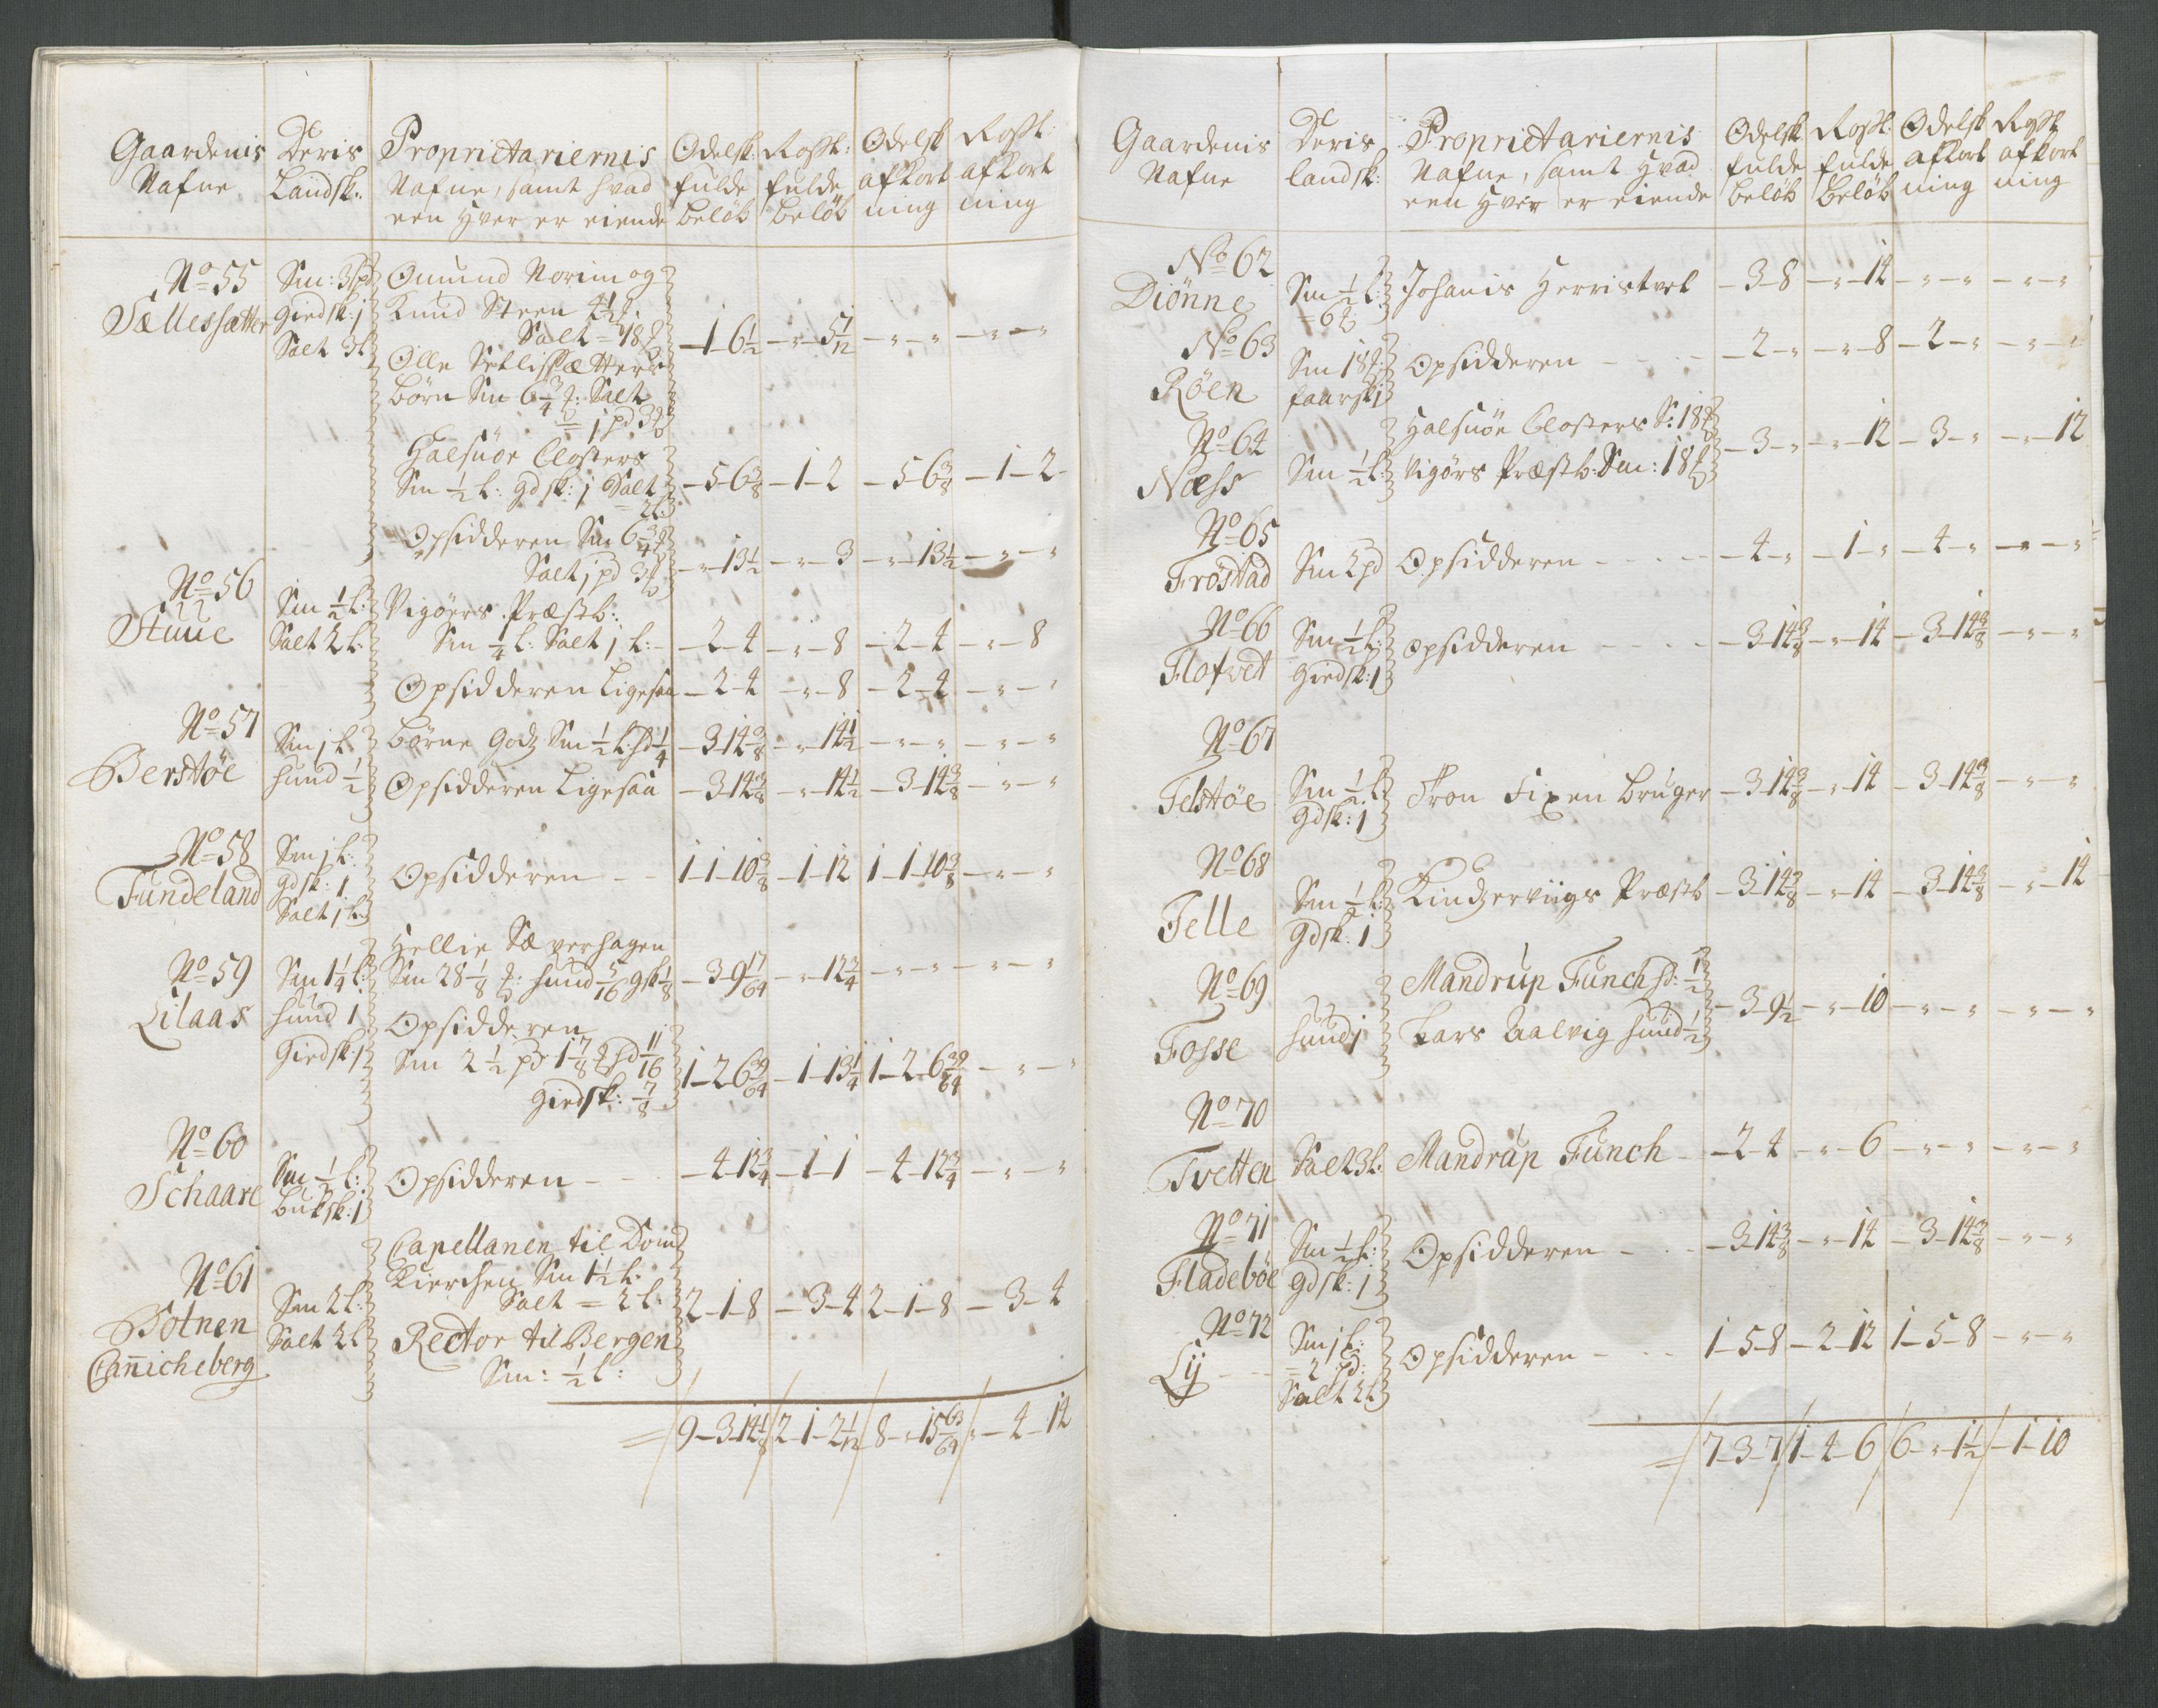 Gaardenis Nafne | Deris Landsk: | Proprietariernis Nafne, samt hvad een Hver er eiende | Odelsk: fulde Belöb | Rostt: fulde Belöb | Odelsk afkortning | Rostt: afkortning
No 55 Sællessætter | Sm: 3 pd Giedsk: 1 Salt 3 l | Omund Norim og
Knud Steen 4 1/2 t.
Salt = 18 t | -1-6 1/2 | -"-5 1/12 | -"-" | -"-"
Olle Setlissætters
Börn Sm 6 3/4 t: Salt
= 1 pd 3 t
Halsnöe Closters
Sm 1/2 l: gdsk: 1 Salt
= 2 l: | -5-6 3/8 | -1-2 | -5-6 3/8 | -1-2-
Opsidderen Sm 6 3/4 t
Salt 1 pd 3 t | -"-13 1/2 | -"-3 | -"-13 1/2 | -"-"
No 56 Stuue | Sm 1/2 l: Salt 2 l: | Vigöers Præstb:
Sm 1/4 l: Salt 1 l: | -2-4 | -"-8 | -2-4 | -"-8
Opsidderen Ligesaa | -2-4 | -"-8 | -2-4 | -"-"
No 57 Berstöe | Sm 1 l: hund 1/2 | Börne Godtz Sm 1/2 l: hd 1/4 | -3-14 3/8 | -"-14 1/2 | -"-" | -"-"
Opsidderen Ligesaa | -3-14 3/8 | -"-14 1/2 | -3-14 3/8 | -"-"
No 58 Fundeland | Sm 1 l: gdsk: 1 Salt 1 l: | Opsidderen | 1-1-10 3/8 | -1-12 | 1-1-10 3/8 | -"-"
No 59 Lilaas | Sm 1 1/4 l: hund 1 Giedsk: 1 | Hellie Sæverhagen
Sm 28 1/8 t: hund 5/16 gsk 1/8 | -3-9 17/64 | -"-12 3/4 | -"-" | -"-"
Opsidderen
Sm 2 1/2 pd 1 7/8 t hd 11/16
giedsk: 7/8 | 1-2-6 39/64 | -1-13 1/4 | 1-2-6 39/64 | -"-"
No 60 Schaare | Sm 1/2 l: Buksk: 1 | Opsidderen | -4-12 3/4 | -1-1 | -4-12 3/4 | -"-"
No 61 Botnen Cannicheberg | Sm 2 l: Salt 2 l | Capellanen til Dom
Kierchen Sm 1 1/2 l:
Salt = 2 l: | 2-1-8 | -3-4 | 2-1-8 | -3-4
Rector til Bergen
Sm: 1/2 l:
= 9-3-14 1/8 | 2-1-2 1/12 | 8-"-15 63/64 | "-4-14
Gaardenis Nafne | Deris landsk: | Proprietariernis Nafne, samt Hvad een Hver er eiende | Odelsk fulde Belöb | Rostt: fulde Belöb | Odelsk afkortning | Rostt afkortning
No 62 Diönne | Sm 1/2 l: = 6 t | Johanis Herristvel | -3-8 | -"-14 | -"-" | -"-"
No 63 Röen | Sm 18 t: faarsk 1 | Opsidderen | -2-" | -"-8 | -2-" | -"-"
No 64 Næss | Sm 1/2 l: | Halsnöe Closters S: 18 t
Vigörs Præstb: Sm: 18 t | -3-" | -"-12 | -3-" | -"-12
No 65 Fröstad | Sm 2 pd | Opsidderen | -4-" | -1-" | -4-" | -"-"
No 66 Flofvet | Sm 1/2 l: Giedsk: 1 | Opsidderen | -3-14 3/8 | -"-14 | -3-14 3/8 | -"-"
No 67 Felstöe | Sm 1/2 l: gdsk: 1 | Tron Fixen Bruger | -3-14 3/8 | -"-14 | -3-14 3/8 | -"-"
No 68 Felle | Sm 1/2 l: gdsk: 1 | Kindzerviigs Præstb | -3-14 3/8 | -"-14 | -3-14 3/8 | -"-14
No 69 Fosse | hund 1 | Mandrup Funch hd: 1/2
Lars Aalvig hund 1/2 | -3-9 1/2 | -"-10 | -"-" | -"-"
No 70 Tvetten | Salt 3 l: | Mandrup Funch | -2-4 | -"-6 | -"-" | -"-"
No 71 Fladeböe | Sm 1/2 l: gdsk: 1 | Opsidderen | -3-14 3/8 | -"-14 | -3-14 3/8 | -"-"
No 72 Lij | Sm 1 l: = 2 pd: Salt 2 l | Opsidderen | 1-5-8 | -2-12 | 1-5-8 | -"-"
= 7-3-7 | 1-4-6 | 6-"-1 1/2 | -1-10